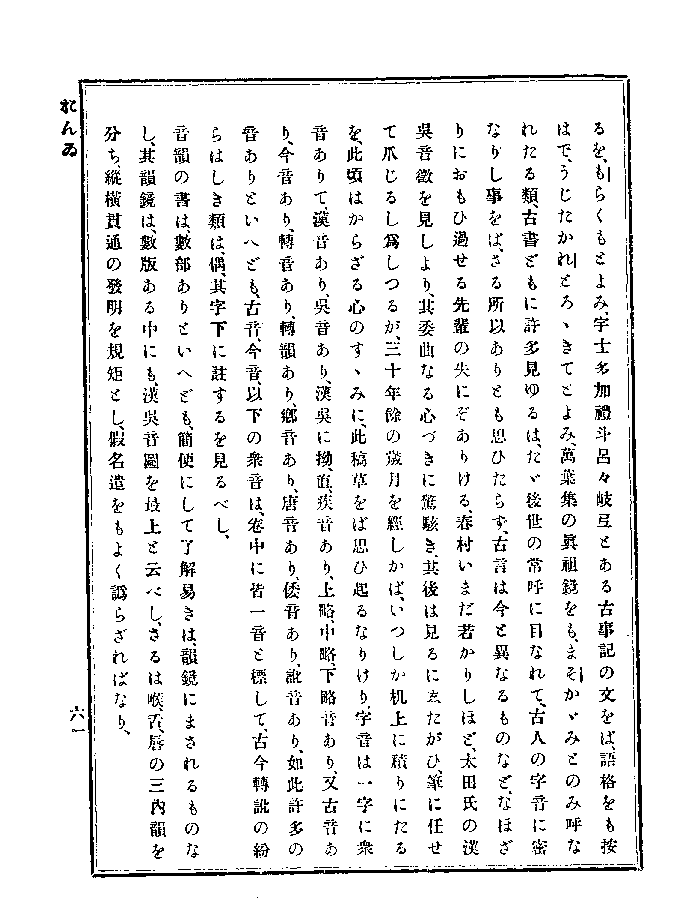 おんゐ
るを、もらくもとよみ、宇士多加禮斗呂々岐弖とある古事記の文をば、語格をも按
はで、うじたかれとろゝきてとよみ、萬葉集の眞祖鏡をも、まそかゞみとのみ呼な
れたる類、古書どもに許多見ゆるは、たゞ後世の常呼に目なれて、古人の字音に密
なりし事をば、さる所以ありとも思ひたらず、古言は今と異なるものなど、なほざ
りにおもひ過せる先輩の失にぞありける、春村いまだ若かりしほど、太田氏の漢
吳音徵を見しより、其委曲なる心づきに驚駭き、其後は見るにゑたがひ、筆に任せ
て爪じるし爲しつるが、三十年餘の歲月を經しかば、いつしか机上に積りにたる
を、此頃はからざる心のすゝみに、此稿草をば思ひ起るなりけり、字音は一字に衆
音ありて、漢音あり、吳音あり、漢吳に拗、直、疾音あり、上略、中略、下略音あり、又古音あ
り、今音あり、轉音あり、轉韻あり、鄕音あり、唐音あり、倭音あり、訛音あり、如此許多の
音ありといへども、古音、今音、以下の衆音は、卷中に皆一音と標して、古今轉訛の紛
らはしき類は、偶、其字下に註するを見るべし、
音韻の書は、數部ありといへども、簡便にして了解易きは、韻鏡にまされるものな
し、其韻鏡は、數版ある中にも、漢吳音圖を最上と云べし、さるは喉、舌、唇の三內韻を
分ち、縱橫貫通の發明を規矩とし、假名遣をもよく謬らざればなり、
六一